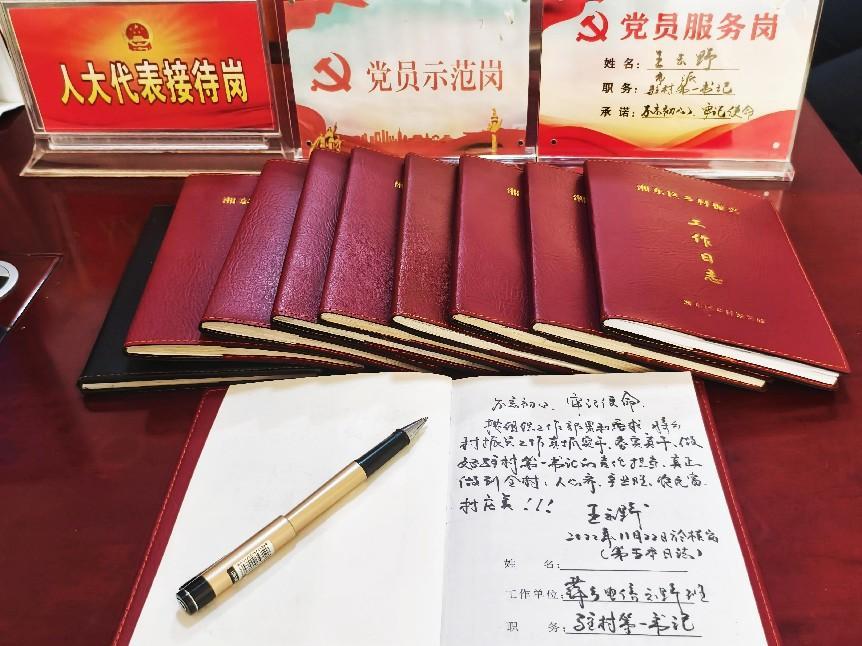 人大代表接待岗
党员示范岗
党员服务岗
姓名：王云野
市派
职务：驻村第一书记
承诺：不忘初心、牢记使命
湘东
湘东区乡村振兴
工作日志
不忘初心、牢记使命
按组织工作部署和要求
村振兴工作真抓实干
好驻村第一书记的责任担当，真正
做到全村：人心齐、产业旺、
村庄美！！！
王云野
2022年11月22日
（第五本日志）
姓 名：
工作单位：萍乡电信云野班
职 务：驻村第一书记